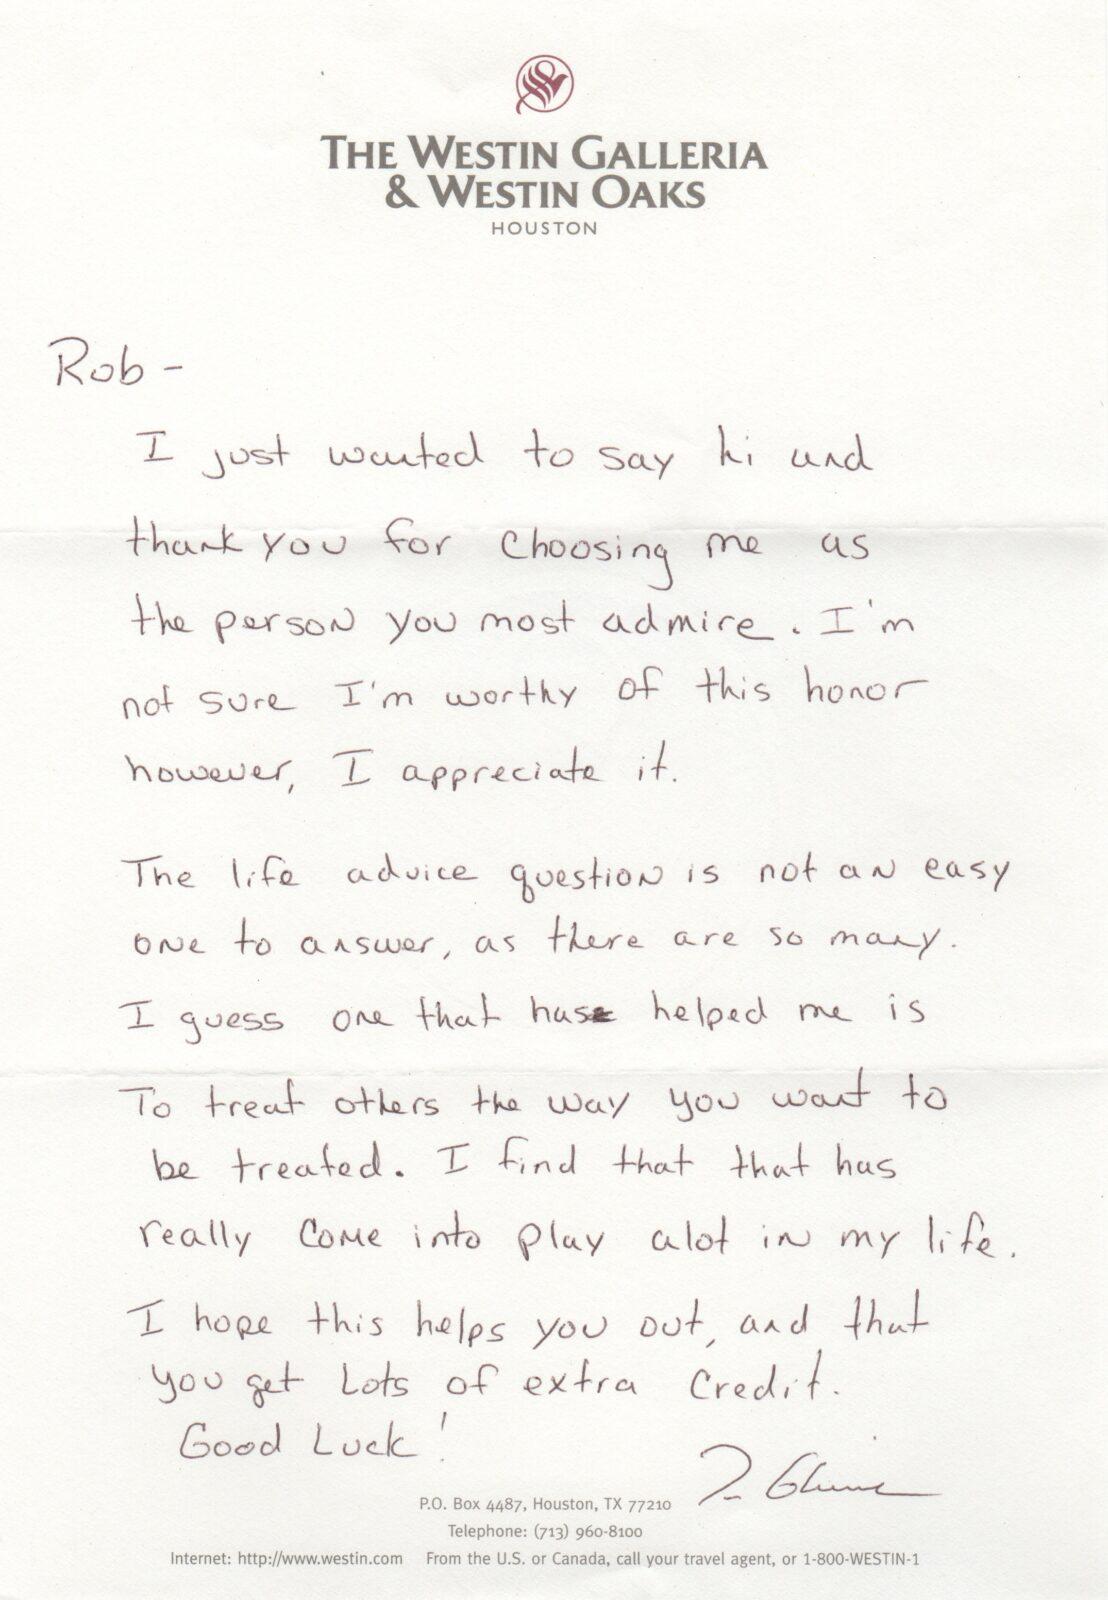 THE WESTIN GALLERIA
& WESTIN OAKS
HOUSTON
Rob -
I just wanted to say hi and
thank you for choosing me as
the person you most admire. I'm
not sure I'm worthy of this honor
however, I appreciate it.
The life advice question is not an easy
one to answer, as there are so many.
I guess one that has helped me is
To treat others the way you want to
be treated. I find that that has
really come into play alot in my life.
I hope this helps you out, and that
you get Lots of extra credit.
Good Luck!
P.O. Box 4487, Houston, TX 77210
Telephone: (713) 960-8100
Internet: http://www.westin.com From the U.S. or Canada, call your travel agent, or 1-800-WESTIN-1